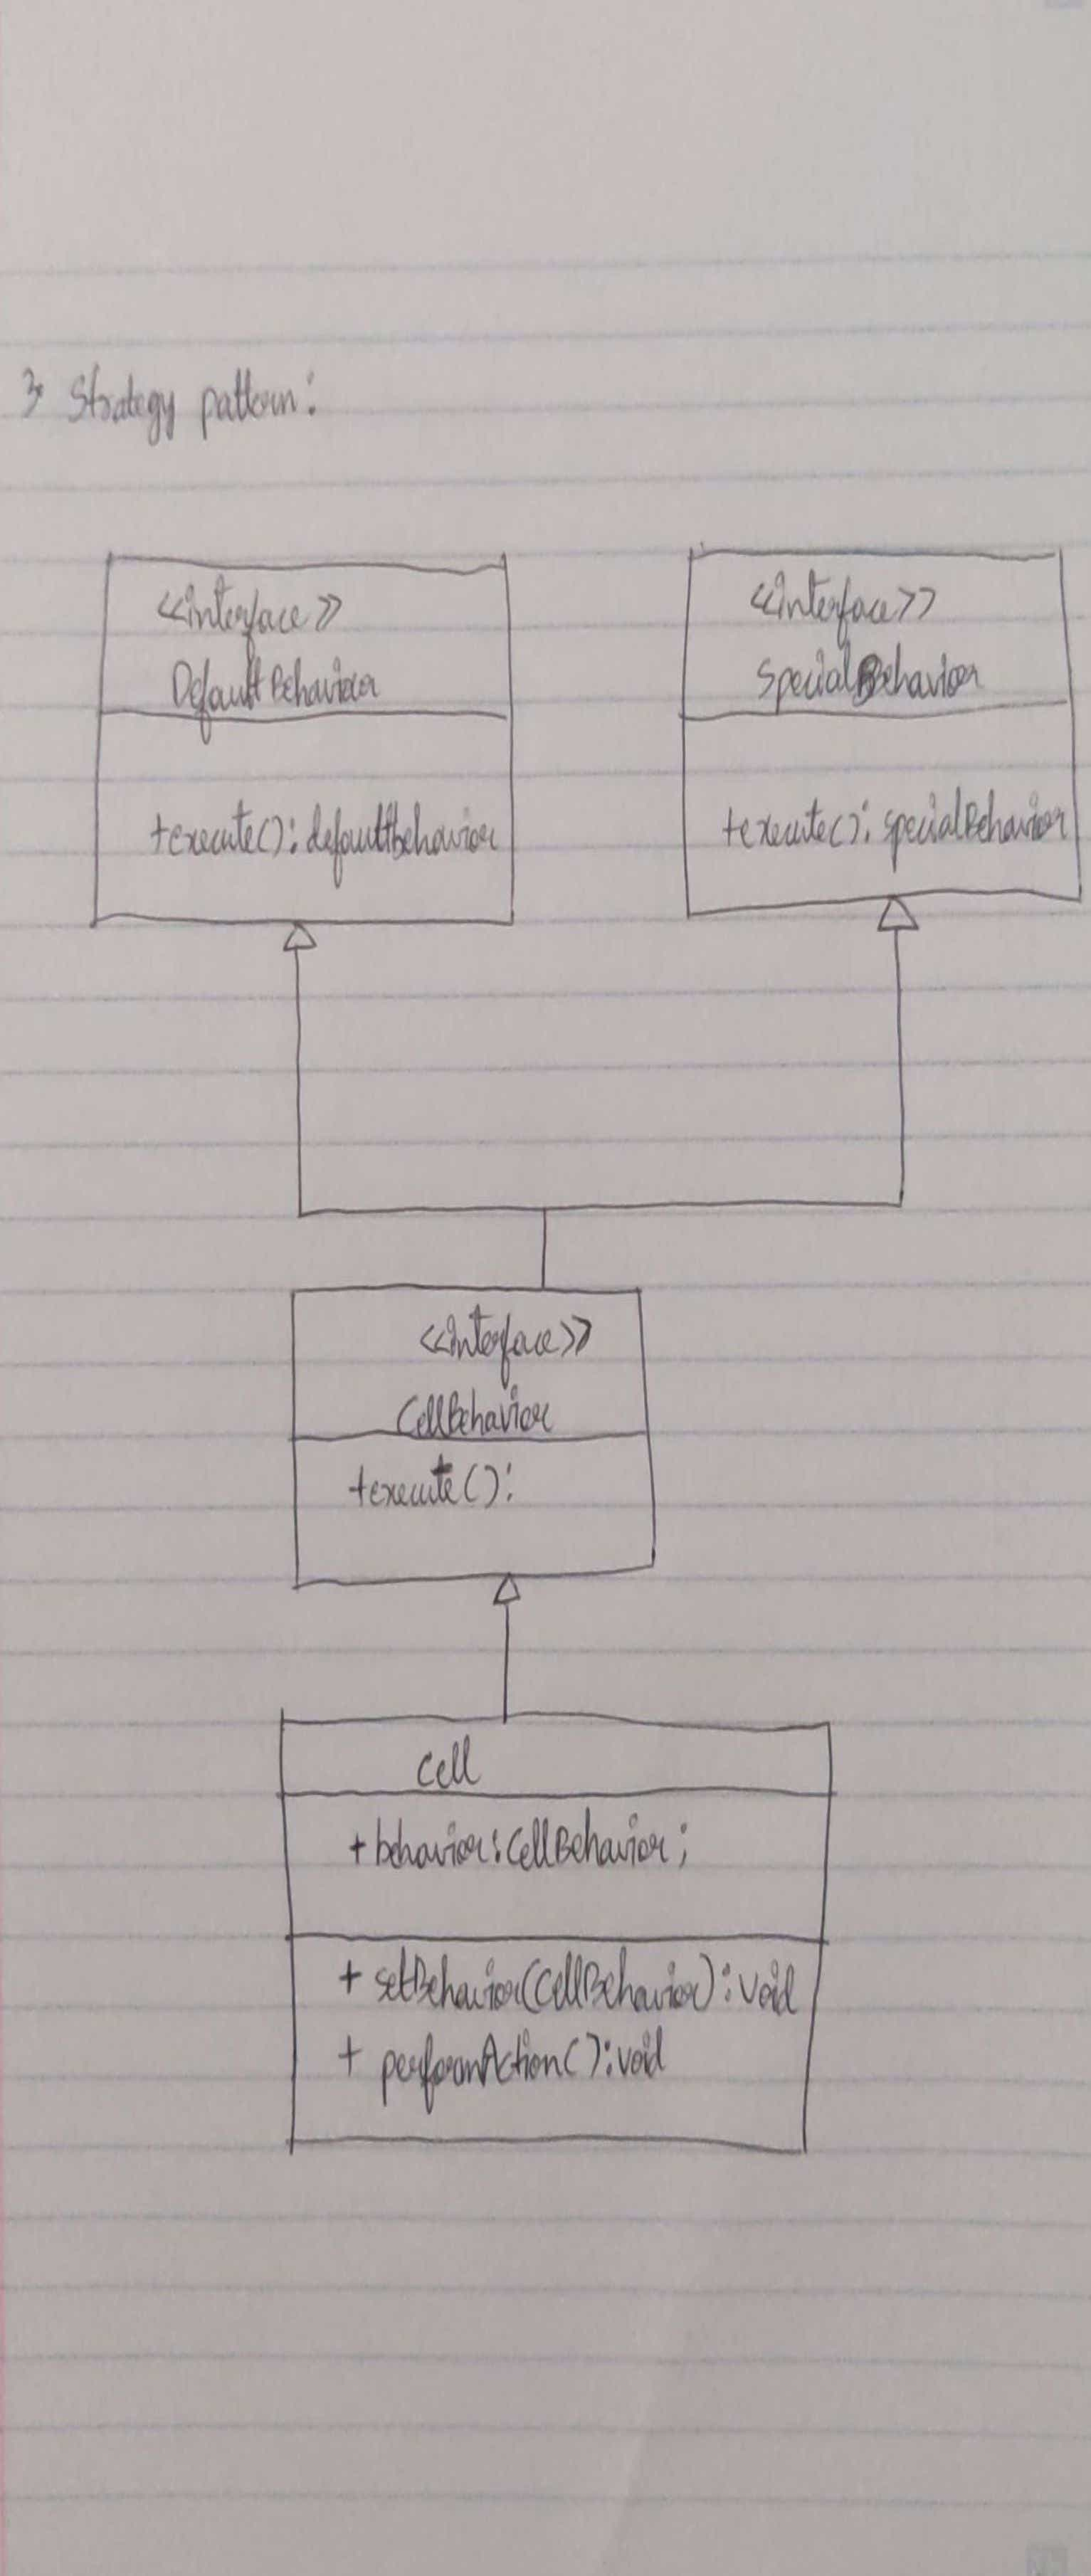 3 Strategy pattern:
<<interface>>
DefaultBehavior
+execute(): defaultBehavior
<<interface>>
SpecialBehavior
+execute(): specialBehavior
<<interface>>
CellBehavior
+execute():
Cell
+ behavior: CellBehavior;
+ setBehavior(CellBehavior): void
+ performAction(): void